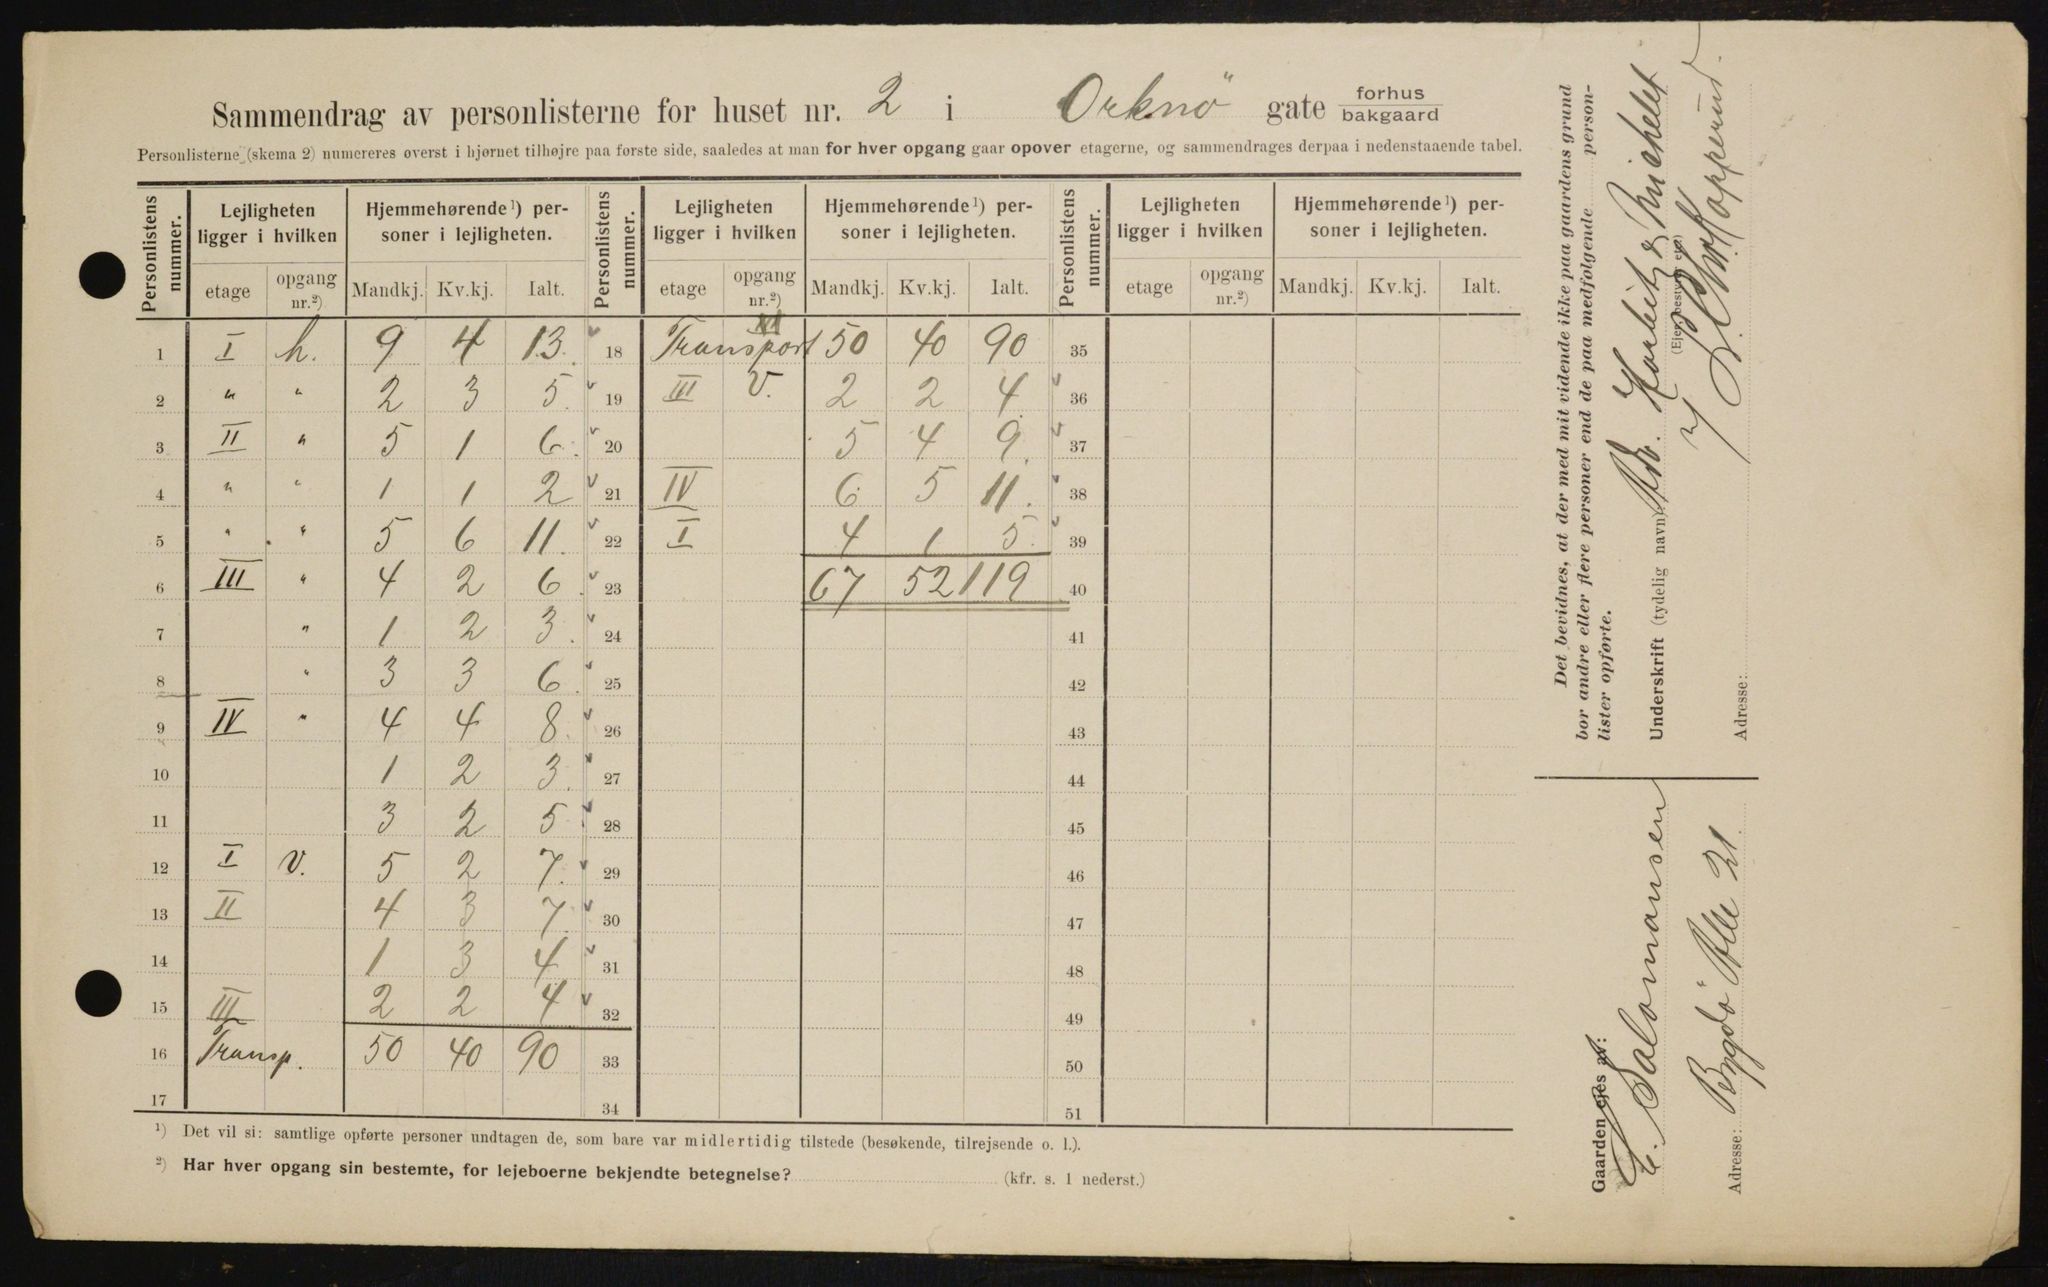 Sammendrag av personlisterne for huset nr. 2 i Orknö gate forhus bakgaard
Personlisterne (skema 2) numereres øverst i hjørnet tilhøjre paa første side, saaledes at man for hver opgang gaar opover etagerne, og sammendrages derpaa i nedenstaaende tabel.
Personlistens nummer. Lejligheten ligger i hvilken Hjemmehørende¹) personer i lejligheten. Personlistens nummer. Lejligheten ligger i hvilken Hjemmehørende¹) personer i lejligheten. Personlistens nummer. Lejligheten ligger i hvilken Hjemmehørende¹) personer i lejligheten.
etage opgang nr.²) Mandkj. Kv.kj. Ialt. etage opgang nr.²) Mandkj. Kv.kj. Ialt. etage opgang nr.²) Mandkj. Kv.kj. Ialt.
1 I h. 9 4 13. 18 Transport 50 40 90 35
2 " " 2 3 5. 19 III V. 2 2 4. 36
3 II " 5 1 6. 20 5 4 9. 37
4 " " 1 1 2 21 IV 6 5 11. 38
5 " " 5 6 11. 22 I 4 1 5. 39
6 III " 4 2 6. 23 67 52 119 40
7 " 1 2 3. 24 41
8 " 3 3 6. 25 42
9 IV " 4 4 8. 26 43
10 1 2 3. 27 44
11 3 2 5 28 45
12 I V. 5 2 7. 29 46
13 II 4 3 7. 30 47
14 1 3 4 31 48
15 III 2 2 4 32 49
16 Transp. 50 40 90 33 50
17 34 51
¹) Det vil si: samtlige opførte personer undtagen de, som bare var midlertidig tilstede (besøkende, tilrejsende o. l.).
²) Har hver opgang sin bestemte, for lejeboerne bekjendte betegnelse? (kfr. s. 1 nederst.)
Det bevidnes, at der med mit vidende ikke paa gaardens grund
bor andre eller flere personer end de paa medfølgende person-
lister opførte.
Underskrift (tydelig navn) Michelet
(Ejer, bestyrer etc.)
Adresse:
Gaarden ejes av:
Salomansen
Adresse: Bygdö Alle 21